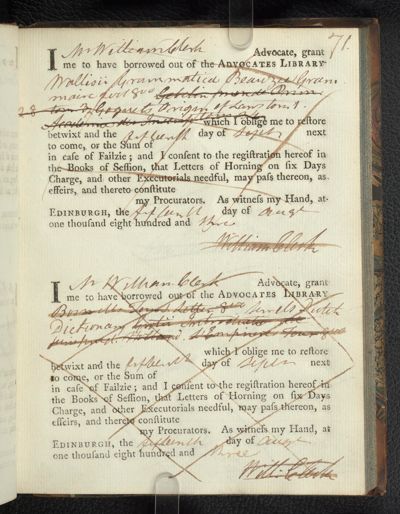 71.
I Mr William Clerk Advocate, grant
me to have borrowed out of the ADVOCATES LIBRARY
Wallisii Grammatica Beauzee Gram
maire gen 8vo
Goguets Origin of Laws tom 1.
which I oblige me to restore
betwixt and the fifteenth day of Septr next
to come, or the Sum of
in case of Failzie; and I consent to the registration hereof in
the Books of Session, that Letters of Horning on six Days
Charge, and other Executorials needful, may pass thereon, as
effeirs, and thereto constitute
my Procurators. As witness my Hand, at
EDINBURGH, the fifteenth day of Augt
one thousand eight hundred and three
William Clerk
I Mr William Clerk Advocate, grant
me to have borrowed out of the ADVOCATES LIBRARY
Letters 8vo
Dictionary
Tour 8vo
which I oblige me to restore
betwixt and the fifteenth day of Septr next
to come, or the Sum of
in case of Failzie; and I consent to the registration hereof in
the Books of Session, that Letters of Horning on six Days
Charge, and other Executorials needful, may pass thereon, as
effeirs, and thereto constitute
my Procurators. As witness my Hand, at
EDINBURGH, the fifteenth day of Augt
one thousand eight hundred and three
Will. Clerk